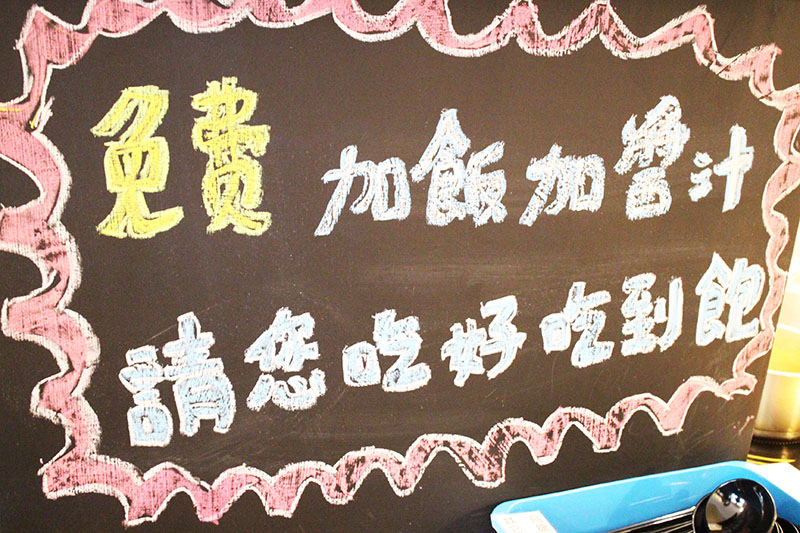 免費 加飯加醬汁
請您吃好吃到飽